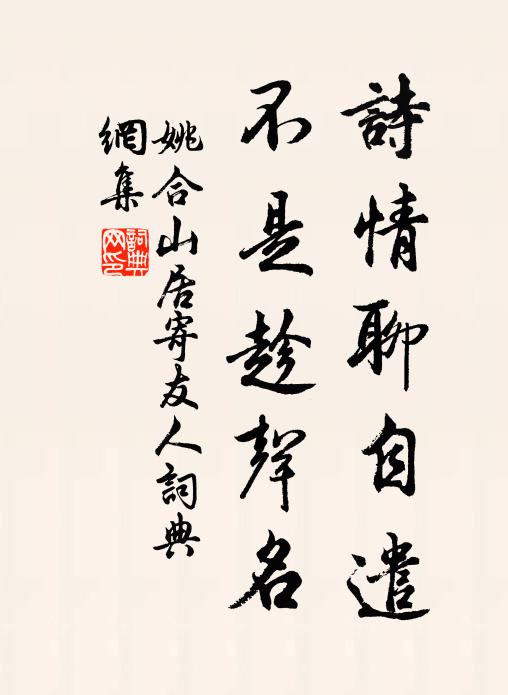 詩情聊自遣
不是趁聲名
姚合山居寄友人詞典
網集
詞典
网印